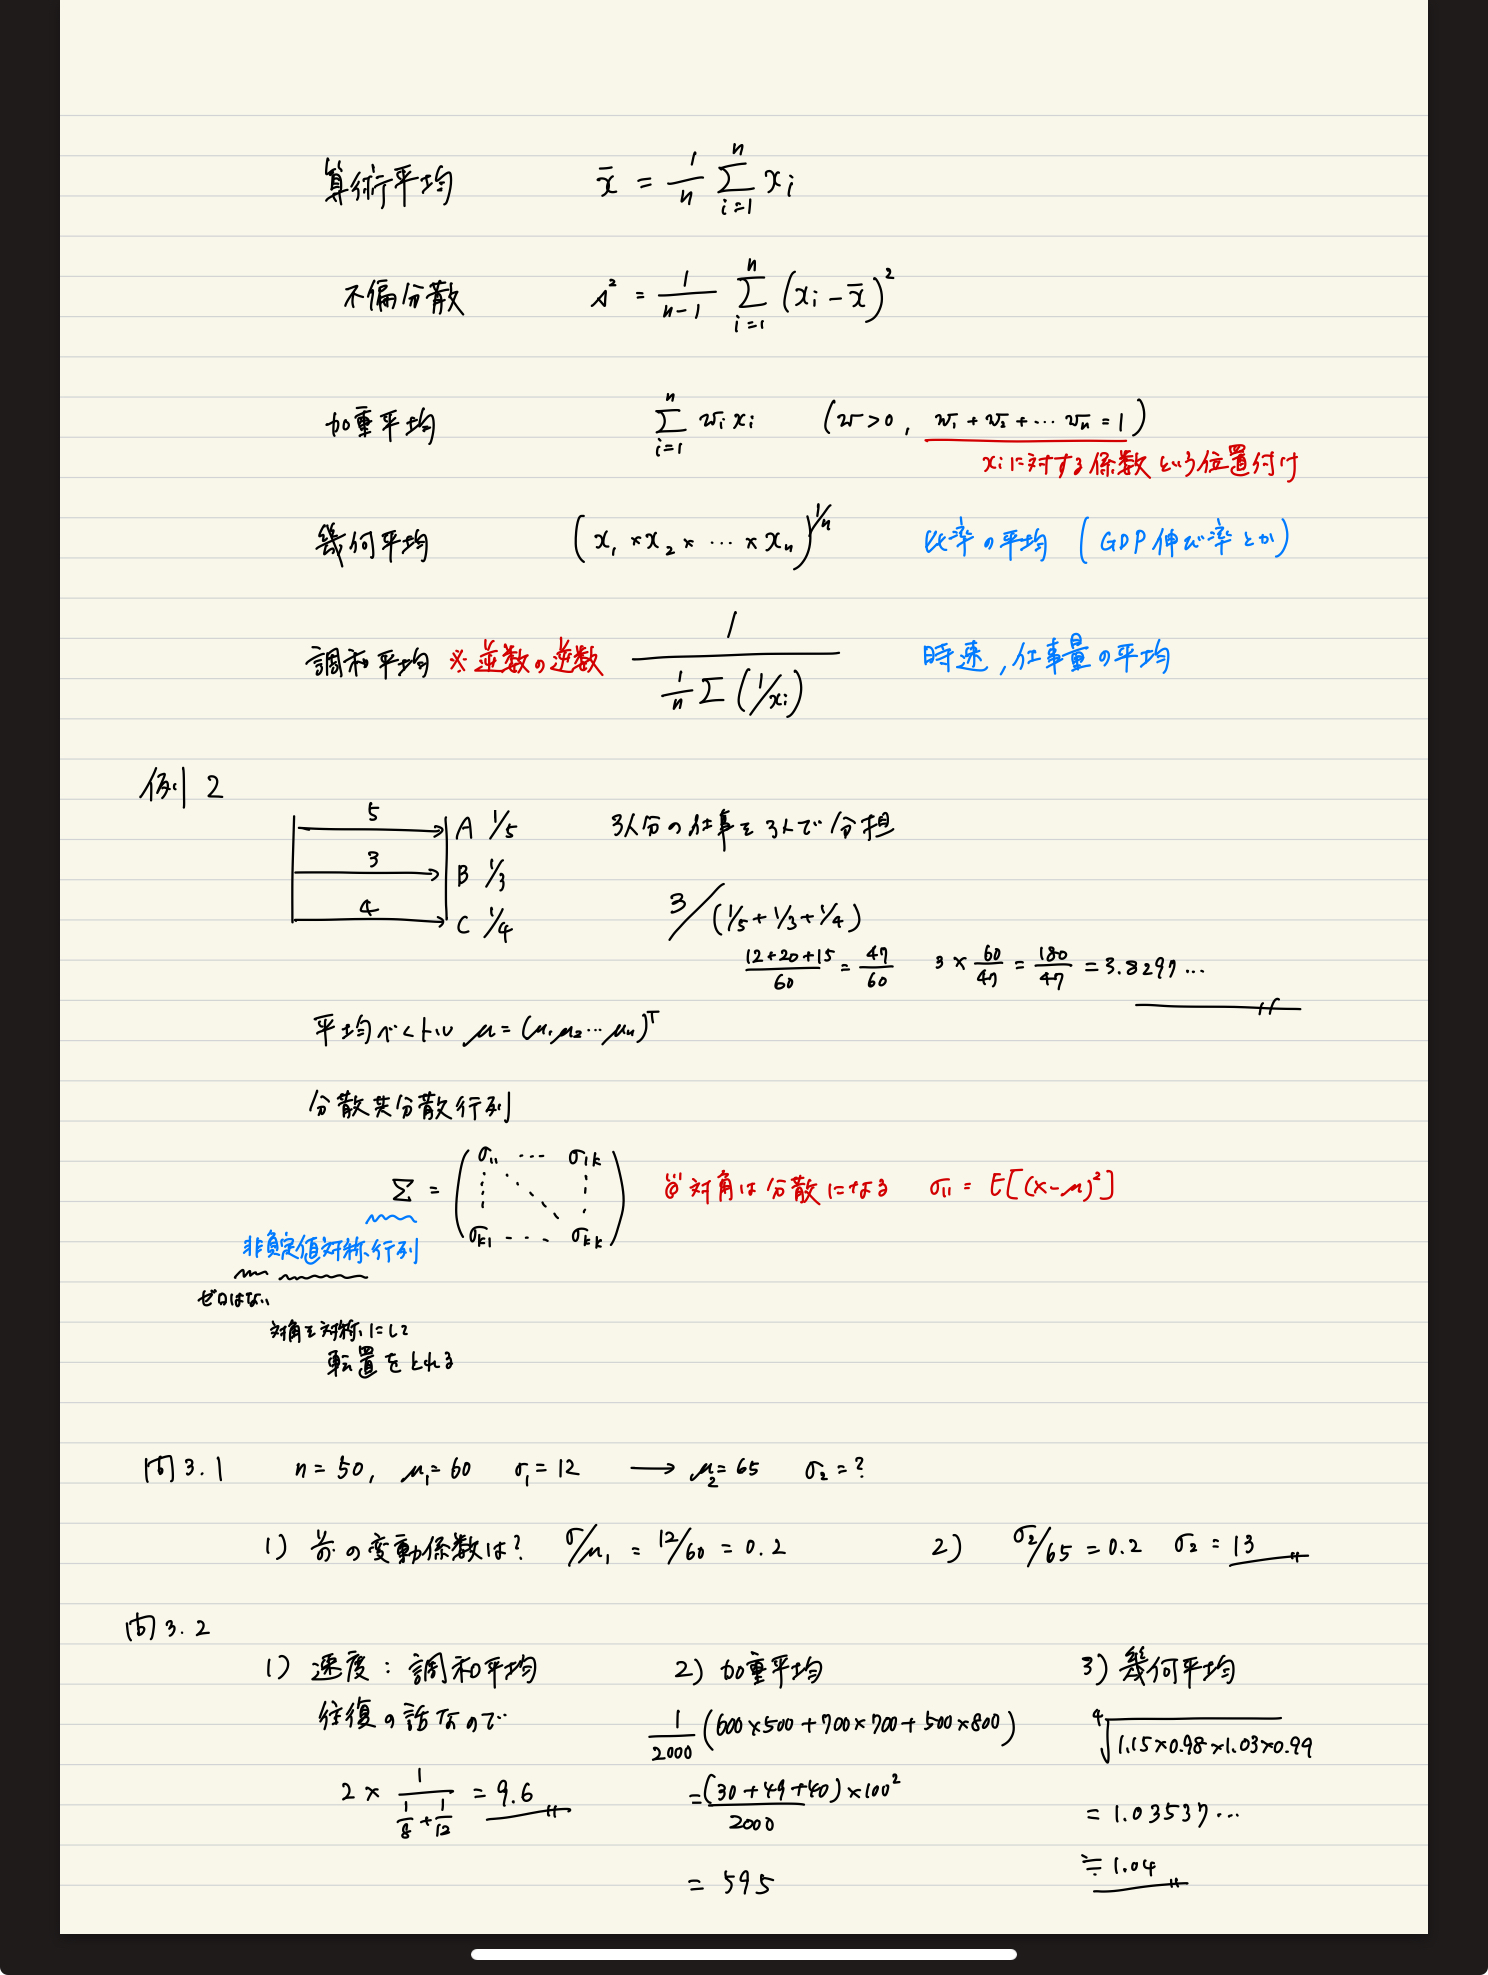 算術平均 x̄ = 1/n Σ_{i=1}^{n} xi
不偏分散 s² = 1/(n-1) Σ_{i=1}^{n} (xi - x̄)²
加重平均 Σ_{i=1}^{n} wi xi (w>0, w₁+w₂+…wn=1)
xiに対する係数という位置付け
幾何平均 (x₁×x₂×…×xn)^{1/n} 比率の平均 (GDP伸び率とか)
調和平均 ※逆数の逆数 1/(1/n Σ(1/xi)) 時速,仕事量の平均
例2
5 A 1/5 3人分の仕事を3人で分担
3 B 1/3
4 C 1/4 3/(1/5+1/3+1/4)
(12+20+15)/60 = 47/60 3×60/47 = 180/47 = 3.8297…
平均ベクトル μ=(μ₁μ₂…μn)^T
分散共分散行列
Σ = (σ₁₁ … σ₁k ⋮ ⋱ ⋮ σk₁ … σkk) 対角は分散になる σ₁₁ = E[(x-μ)²]
非負定値対称行列
ゼロはない
対角を対称にして
転置をとれる
問3.1 n=50, μ₁=60 σ₁=12 → μ₂=65 σ₂=?
1) 前の変動係数は? σ/μ₁ = 12/60 = 0.2 2) σ₂/65 = 0.2 σ₂ = 13
問3.2
1) 速度:調和平均 2) 加重平均 3) 幾何平均
往復の話なので 1/2000 (600×500+700×700+500×800) ⁴√(1.15×0.98×1.03×0.99)
2 × 1/(1/8+1/12) = 9.6 = (30+49+40)×100²/2000 = 1.03537…
= 595 ≒ 1.04